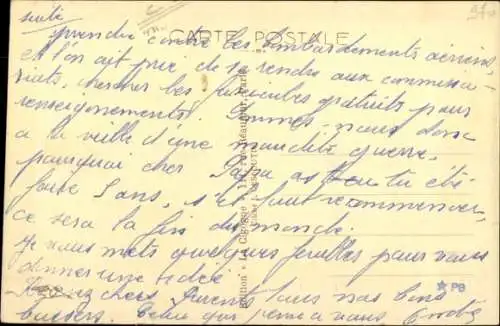 suite
CARTE POSTALE
prendre contre les bombardements aériens,
et l'on ait prié de se rendre aux commissa-
riats, chercher les fascicules gratuits pour
renseignements. Sommes-nous donc
a la veille d'une maudite guerre,
pourquoi cher Papa as tu été
faire 5 ans, s'il faut recommencer,
ce sera la fin du monde.
Je vous mets quelques feuilles pour vous
donner une idée
Recevez chers Parents tous nos bons
baisers. Celui qui pense a vous
Edition "La Cigogne"
PB